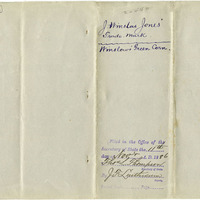 J. Winslow Jones'
Trade-mark
Winslow's Green Corn.
Filed in the Office of the
Secretary of State the 11th
day of Nov. A. D. 1886
Thos. L. Thompson
Secretary of State
By
Deputy